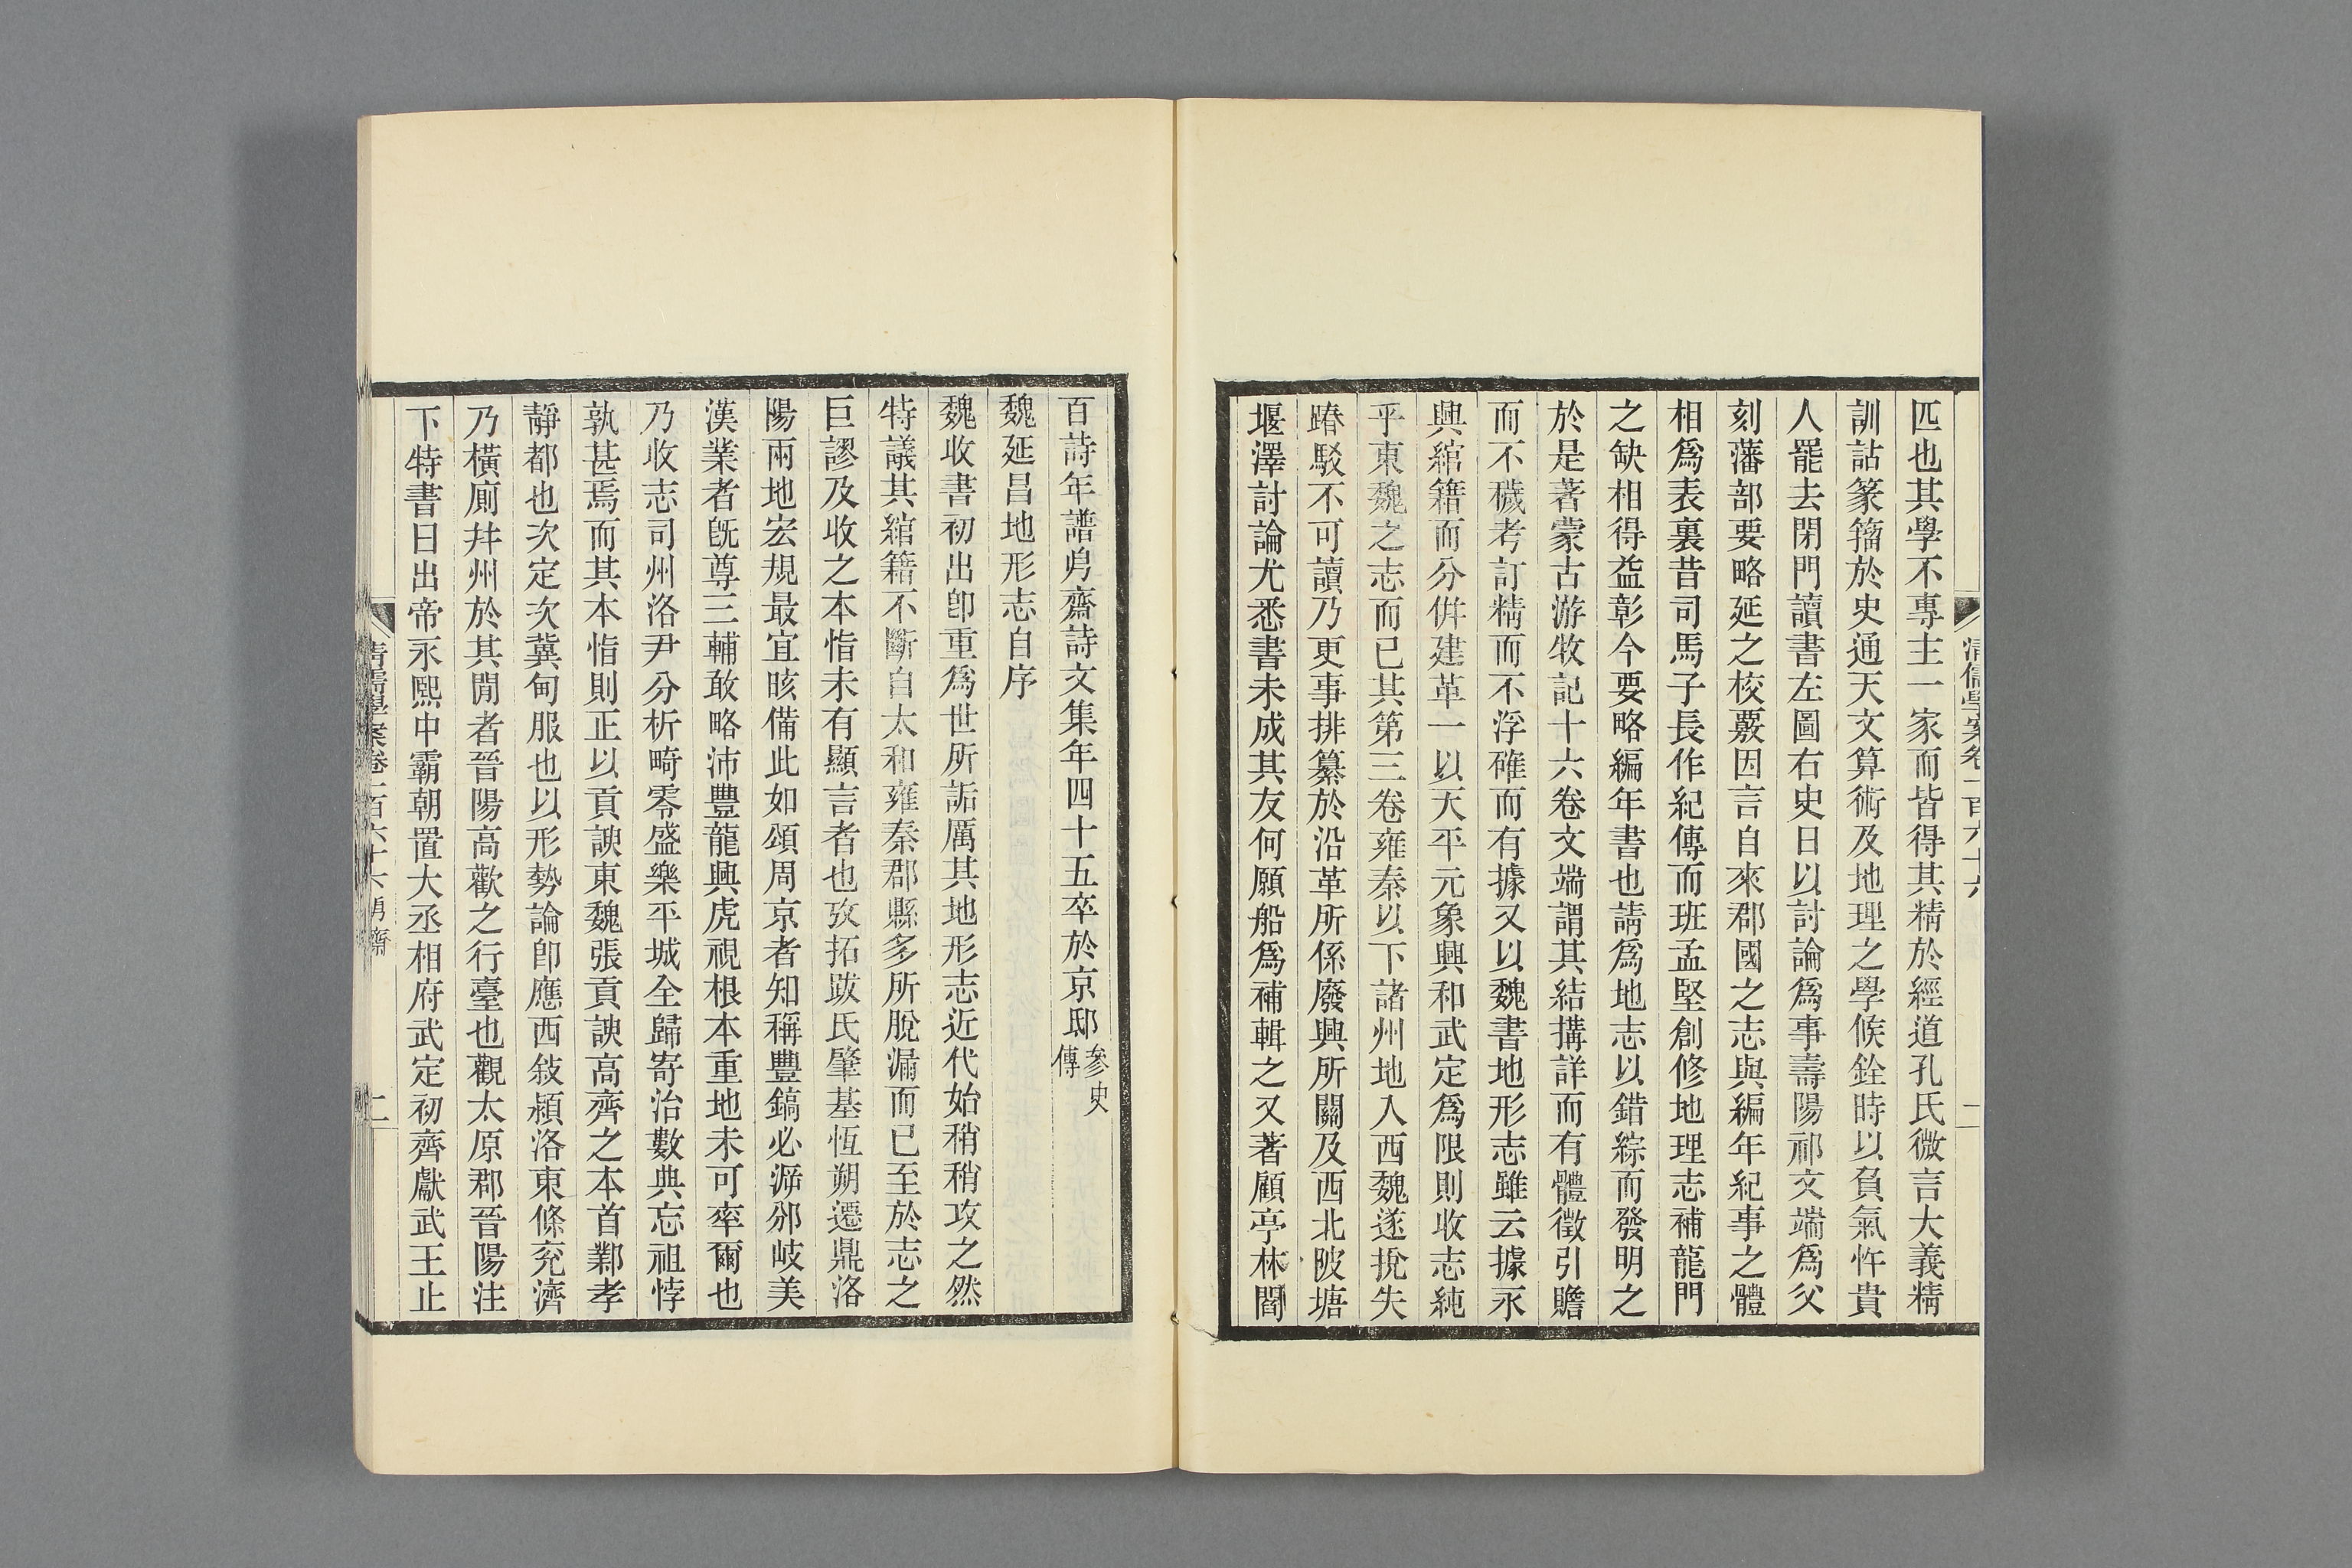 匹也其學不專主一家而皆得其精於經道孔氏微言大義精
訓詁篆籀於史通天文算術及地理之學候銓時以負氣忤貴
人罷去閉門讀書左圖右史日以討論爲事壽陽祁文端爲父
刻藩部要略延之校覈因言自來郡國之志與編年紀事之體
相爲表裏昔司馬子長作紀傳而班孟堅創修地理志補龍門
之缺相得益彰今要略編年書也請爲地志以錯綜而發明之
於是著蒙古游牧記十六卷文端謂其結搆詳而有體徵引贍
而不穢考訂精而不浮確而有據又以魏書地形志雖云據永
興綰籍而分併建革一以天平元象興和武定爲限則收志純
乎東魏之志而已其第三卷雍秦以下諸州地入西魏遂挩失
踳駁不可讀乃更事排纂於沿革所係廢興所關及西北陂塘
堰澤討論尤悉書未成其友何願船爲補輯之又著顧亭林閻
清儒學案卷一百六十六
百詩年譜㐆齋詩文集年四十五卒於京邸參史傳
魏延昌地形志自序
魏收書初出卽重爲世所詬厲其地形志近代始稍稍攻之然
特議其綰籍不斷自太和雍秦郡縣多所脫漏而已至於志之
巨謬及收之本恉未有顯言者也攷拓跋氏肇基恆朔遷鼎洛
陽兩地宏規最宜晐備此如頌周京者知稱豐鎬必遡邠岐美
漢業者旣尊三輔敢略沛豐龍興虎視根本重地未可率爾也
乃收志司州洛尹分析畸零盛樂平城全歸寄治數典忘祖悖
孰甚焉而其本恉則正以貢諛東魏張貢諛高齊之本首鄴孝
靜都也次定次冀甸服也以形勢論卽應西敍潁洛東條兖濟
乃橫廁幷州於其閒者晉陽高歡之行臺也觀太原郡晉陽注
下特書曰出帝永熙中霸朝置大丞相府武定初齊獻武王止
清儒學案卷一百六十六 㐆齋
二